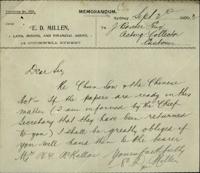 MEMORANDUM.
E. D. MILLEN,
LAND, MINING, AND FINANCIAL AGENT,
Sydney Sept 2
J Baxter Esq
Acting Collector
Customs
Dear Sir
Re Chun Son & the Chinese
Act – If the papers are ready in this
matter (I am informed by the Chief
Secretary that they have been returned
to you) I shall be greatly obliged if
you will hand them to the bearer
Mr W. H. McKellar
Yours faithfully
E. D. Millen